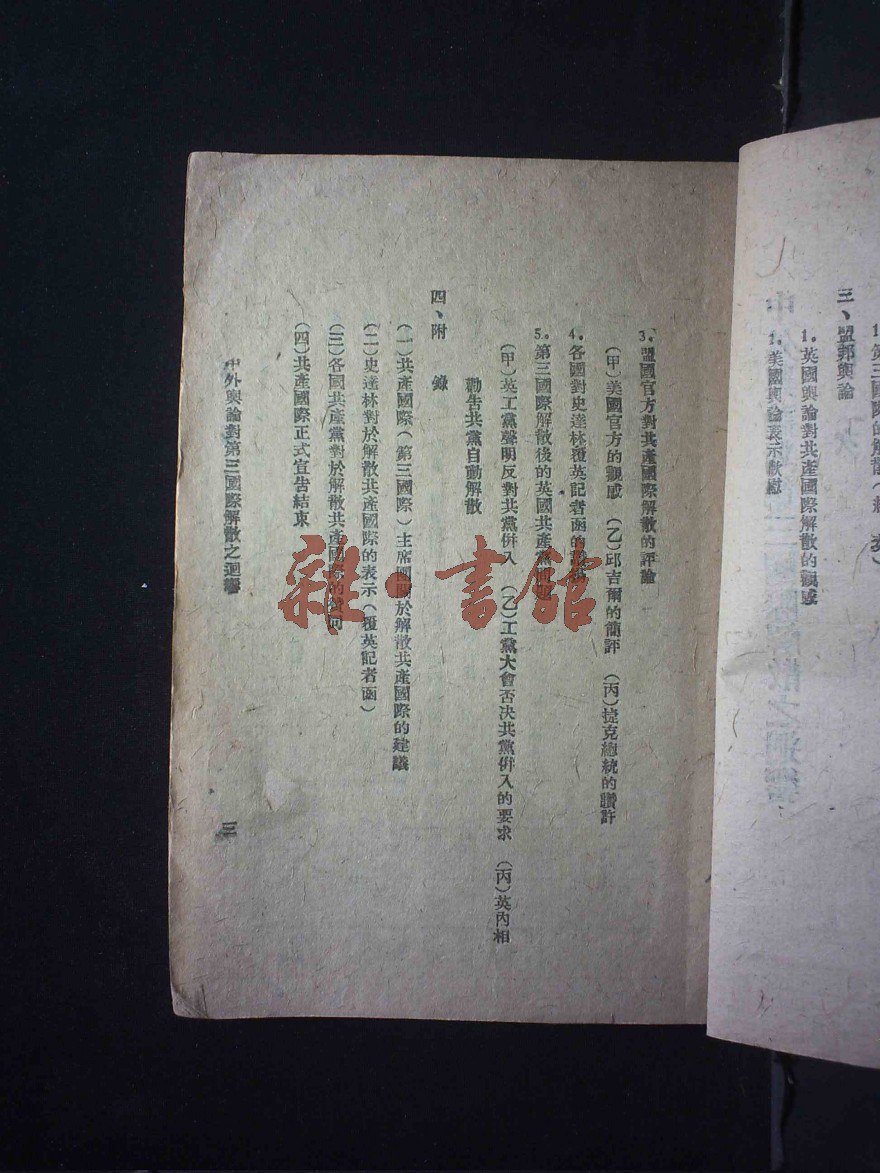 三、盟邦輿論
1.英國輿論對共產國際解散的觀感
1.美國輿論表示歡慰
3.盟國官方對共產國際解散的評論
(甲)美國官方的觀感 (乙)邱吉爾的簡評 (丙)捷克總統的讚許
4.各國對史達林覆英記者函的
5.第三國際解散後的英國共產黨問題
(甲)英工黨聲明反對共黨併入 (乙)工黨大會否决共黨併入的要求 (丙)英內相
勸告共黨自動解散
四、附 錄
(一)共產國際(第三國際)主席團關於解散共產國際的建議
(二)史達林對於解散共產國際的表示(覆英記者函)
(三)各國共產黨對於解散共產國際的贊同
(四)共產國際正式宣告結束
中外輿論對第三國際解散之迴響
三
雜·書館